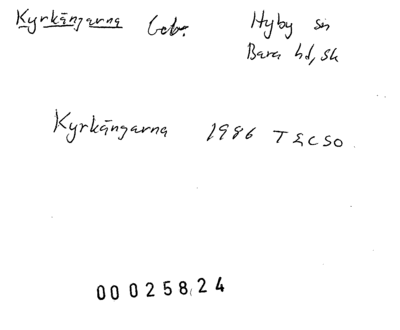 Kyrkängarna Beb. Hyby sn
Bara hd, Sk
Kyrkängarna 1986 T 2C SO
00025824